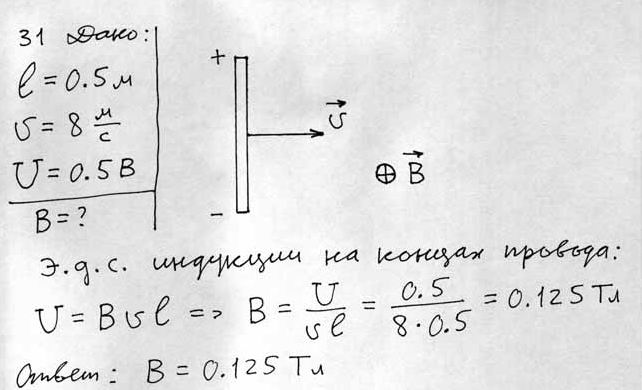 31 Дано:
l = 0.5 м
υ = 8 м/с
U = 0.5 В
B = ?
+
υ⃗
⊕ B⃗
–
Э.д.с. индукции на концах провода:
U = Bυl => B = U/υl = 0.5/8·0.5 = 0.125 Тл
Ответ: B = 0.125 Тл